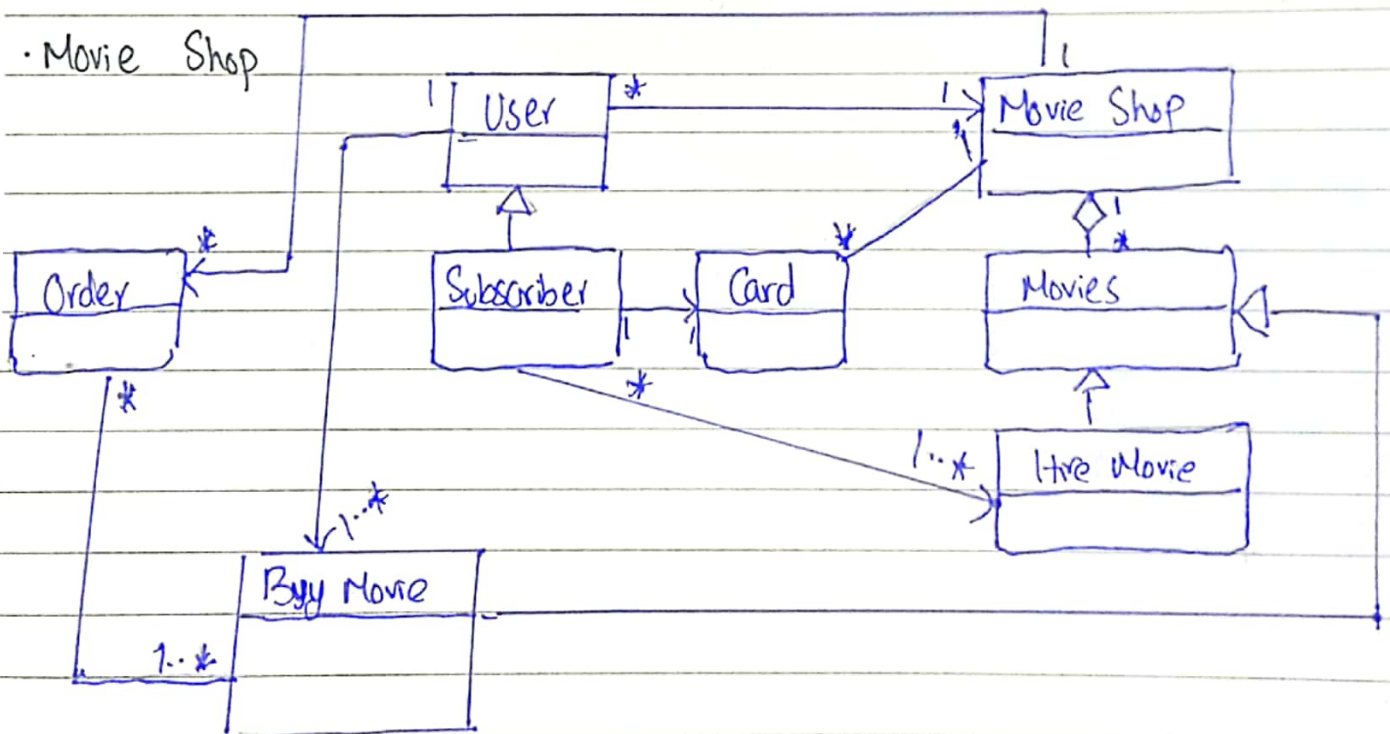 · Movie Shop
1
1 User * 1 Movie Shop
1
1
*
* *
Order Subscriber Card Movies
1 1
* *
1..* Hire Movie
1..*
Byy Movie
1..*